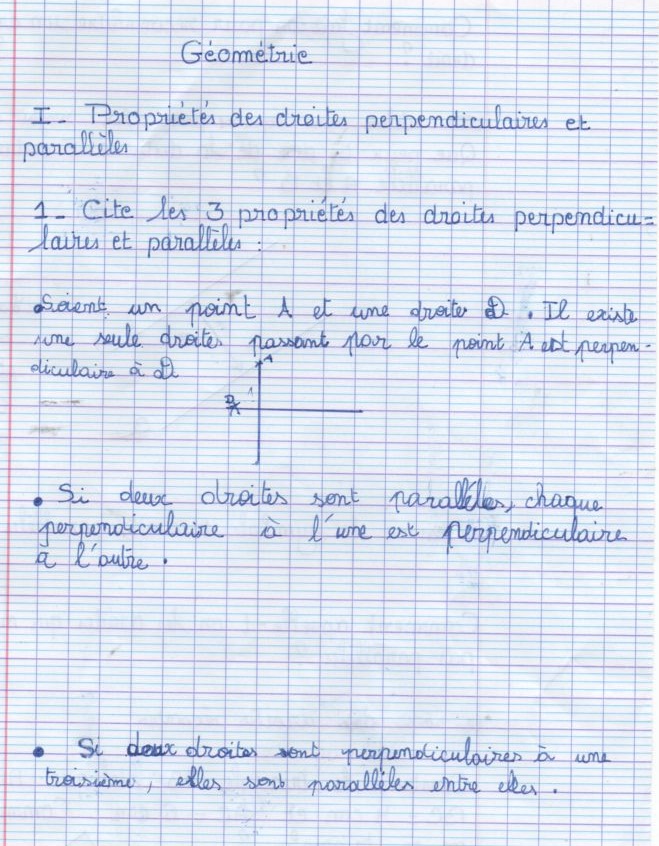 Géométrie
I - Propriétés des droites perpendiculaires et
parallèles
1 - Cite les 3 propriétés des droites perpendicu=
laires et parallèles :
• Soient un point A et une droite D. Il existe
une seule droite passant par le point A est perpen-
diculaire à D
A
• Si deux droites sont parallèles, chaque
perpendiculaire à l'une est perpendiculaire
à l'autre.
• Si deux droites sont perpendiculaires à une
troisième, elles sont parallèles entre elles.